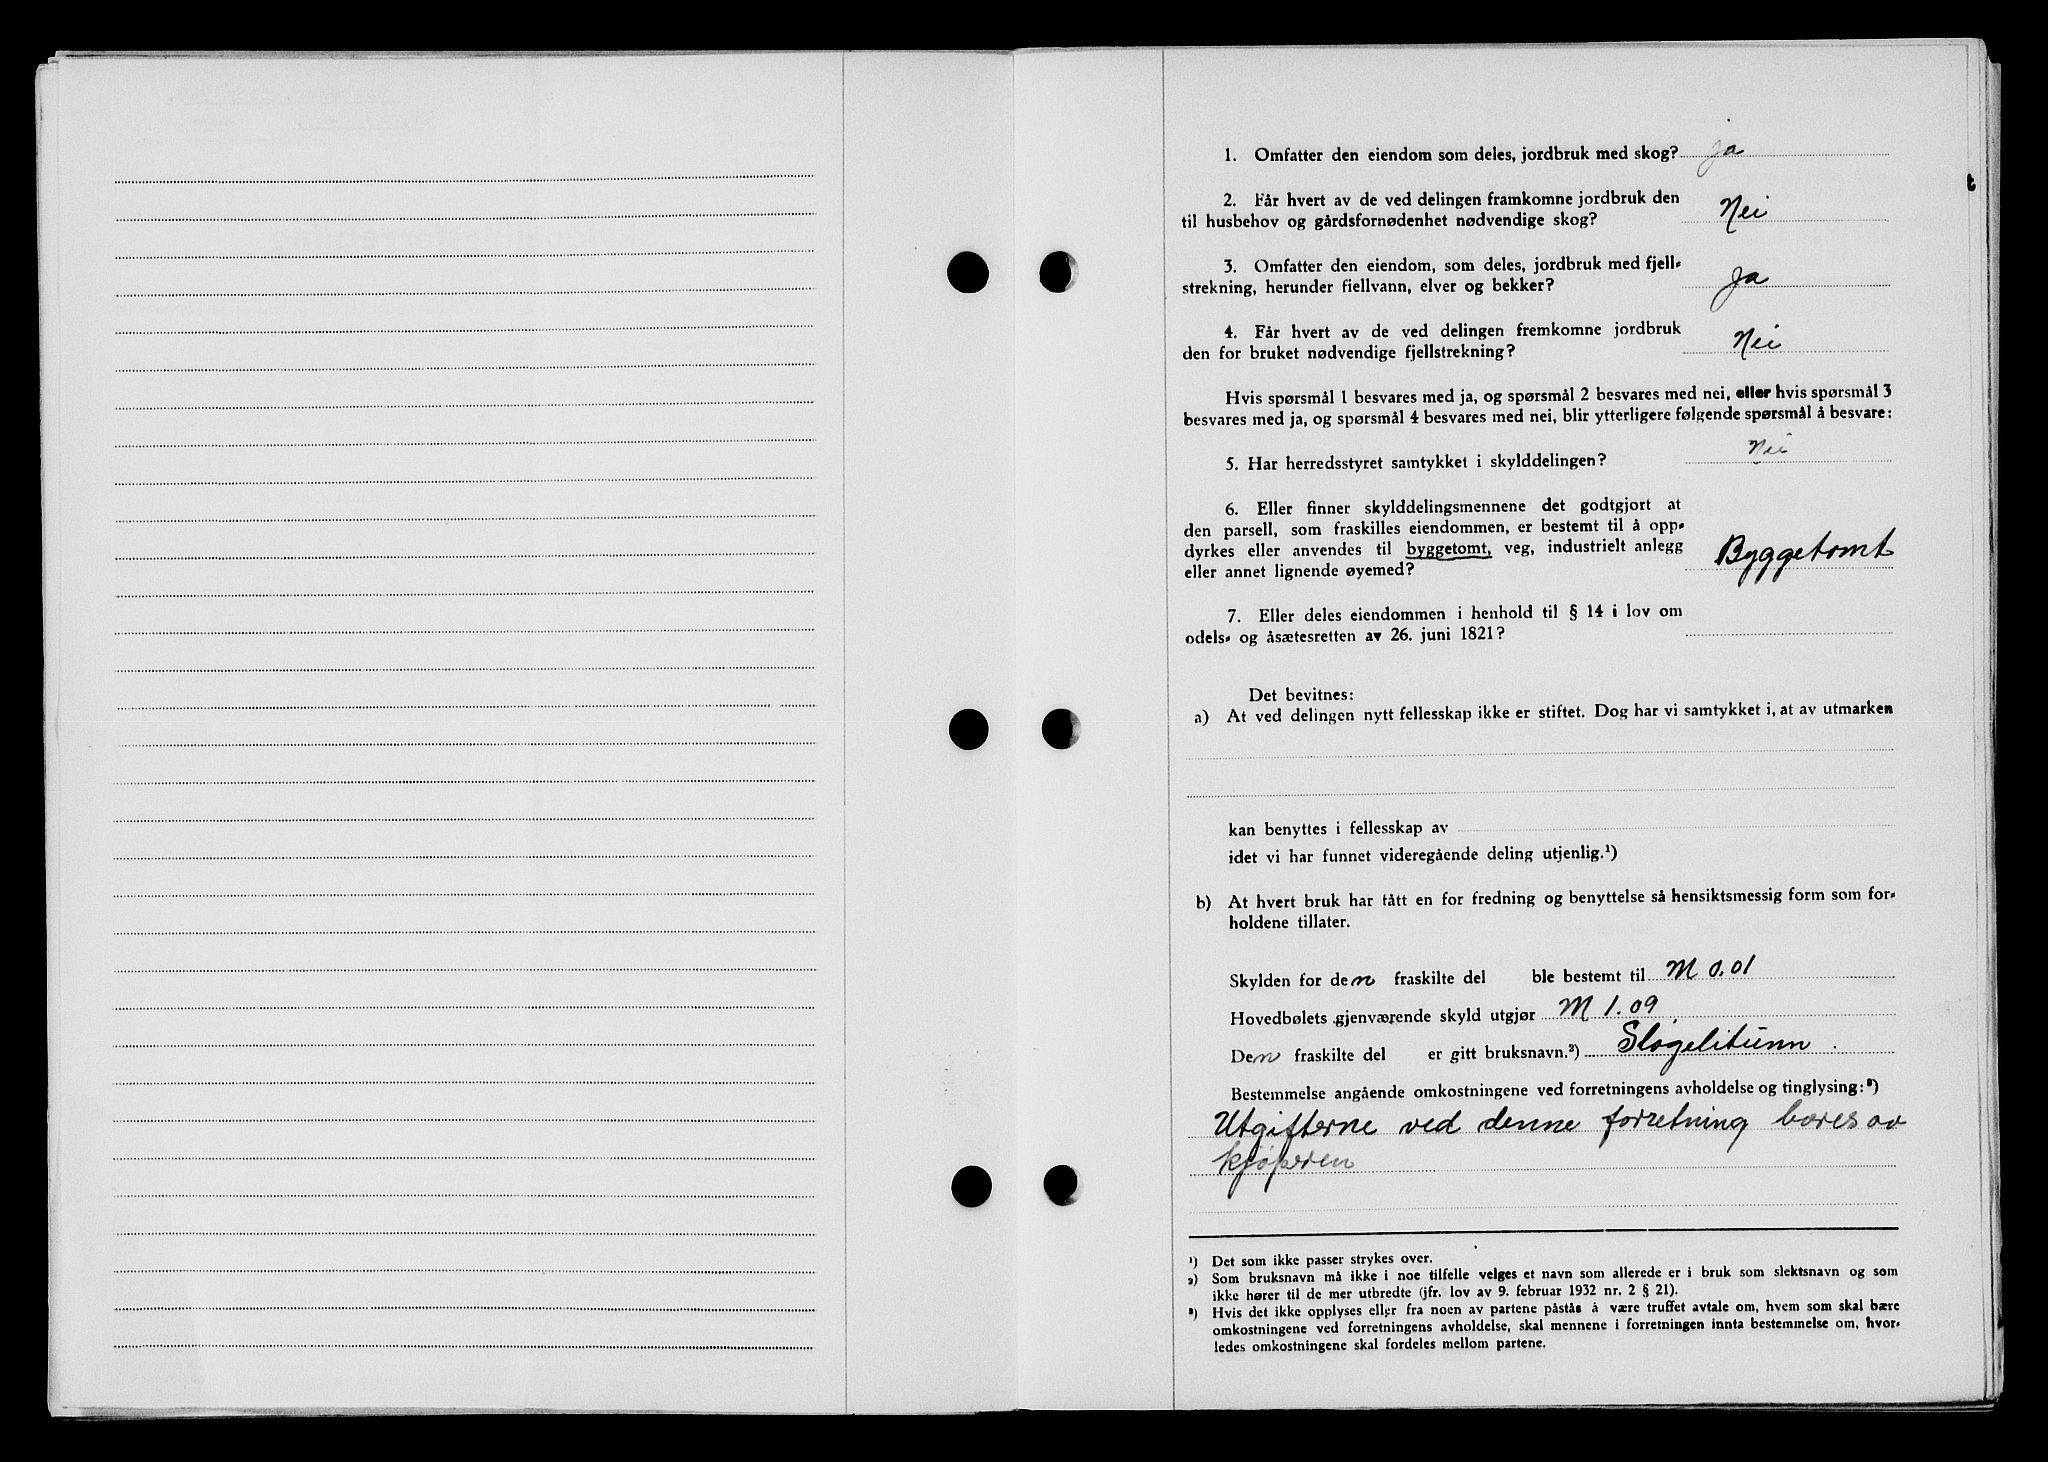 1. Omfatter den eiendom som deles, jordbruk med skog? ja
2. Får hvert av de ved delingen framkomne jordbruk den
til husbehov og gårdsfornødenhet nødvendige skog? Nei
3. Omfatter den eiendom, som deles, jordbruk med fjell-
strekning, herunder fiellvann, elver og bekker? Ja
4. Får hvert av de ved delingen fremkomne jordbruk
den for bruket nødvendige fjellstrekning? Nei
Hvis spørsmål 1 besvares med ja, og spørsmål 2 besvares med nei, eller hvis spørsmål 3
besvares med ja, og spørsmål 4 besvares med nei, blir ytterligere følgende spørsmål å besvare:
5. Har herredsstyret samtykket i skylddelingen? Nei
6. Eller finner skylddelingsmennene det godtgjort at
den parsell, som fraskilles eiendommen, er bestemt til å opp-
dyrkes eller anvendes til byggetomt, veg, industrielt anlegg
eller annet lignende øyemed? Byggetomt
7. Eller deles eiendommen i henhold til § 14 i lov om
odels- og åsætesretten av 26. juni 1821?
Det bevitnes:
a) At ved delingen nytt fellesskap ikke er stiftet. Dog har vi samtykket i, at av utmarken
kan benyttes i fellesskap av
idet vi har funnet videregående deling utjenlig.¹)
b) At hvert bruk har tått en for fredning og benyttelse så hensiktsmessig form som for-
holdene tillater.
Skylden for den fraskilte del ble bestemt til M 0.01
Hovedbølets gjenværende skyld utgjør M 1.09.
Den fraskilte del er gitt bruksnavn.²) Sløgelitunn.
Bestemmelse angående omkostningene ved forretningens avholdelse og tinglysing:³)
Utgifterne ved denne forretning bæres av
kjøperen
¹) Det som ikke passer strykes over.
²) Som bruksnavn må ikke i noe tilfelle velges et navn som allerede er i bruk som slektsnavn og som
ikke hører til de mer utbredte (jfr. lov av 9. februar 1932 nr. 2 § 21).
³) Hvis det ikke opplyses eller fra noen av partene påstås å være truffet avtale om, hvem som skal bære
omkostningene ved forretningens avholdelse, skal mennene i forretningen innta bestemmelse om, hvor-
ledes omkostningene skal fordeles mellom partene.